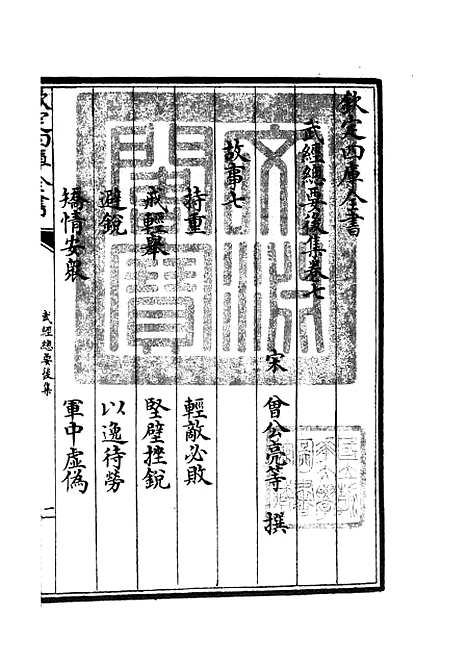 欽定四庫全書
武經總要後集卷七
宋 曾公亮等 撰
故事七
持重 輕敵必敗
戒輕舉 堅壁挫銳
避銳 以逸待勞
矯情安衆 軍中虛偽
欽定四庫全書 武經總要後集 一